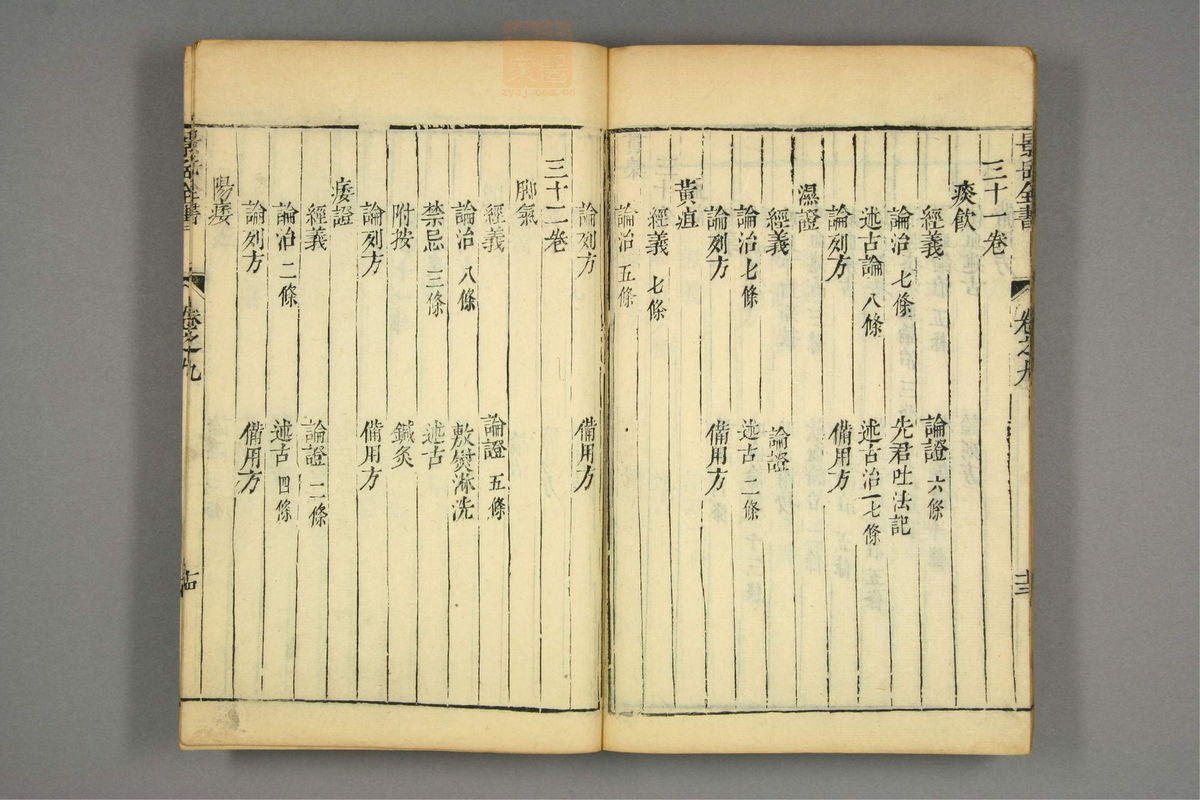 景岳全書 卷之九 十三
三十一卷
痰飲
經義 論證 六條
論治 七條 先君吐法記
述古論 八條 述古治 一七條
論列方 備用方
濕證
經義 論證
論治 七條 述古 二條
論列方 備用方
黃疸
經義 七條
論治 五條
論列方 備用方
三十二卷
腳氣
經義 論證 五條
論治 八條 敷熨淋洗
禁忌 三條 述古
附按 鍼灸
論列方 備用方
痿證
經義 論證 二條
論治 二條 述古 四條
論列方 備用方
陽痿
景岳全書 卷之九 十四